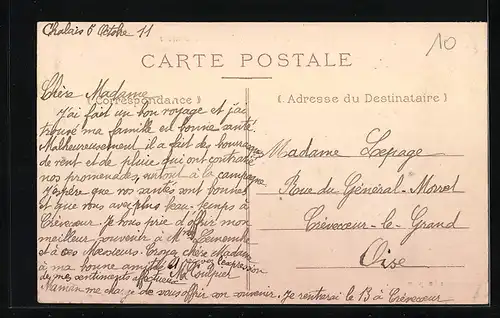 Chalais 6 Octobre 11
10
CARTE POSTALE
(Correspondance)
(Adresse du Destinataire)
Chère Madame
J'ai fait un bon voyage et j'ai
trouvé ma famille en bonne santé.
Malheureusement il a fait des bourrasques
de vent et de pluie qui ont contrarié
nos promenades, surtout à la campagne
J'espère que vos santés sont bonnes
et que vous avez plus beau temps à
Crèvecœur. Je vous prie d'offrir mon
meilleur souvenir à Mme
et à ces Messieurs. Croyez chère Madame
à ma bonne amitié et recevez l'expression
de mes sentiments affectueux. M.
Maman me charge de vous offrir son souvenir. Je rentrerai le 13 à Crèvecœur
Madame Lepage
Rue du Général-Morel
Crèvecœur-le-Grand
Oise